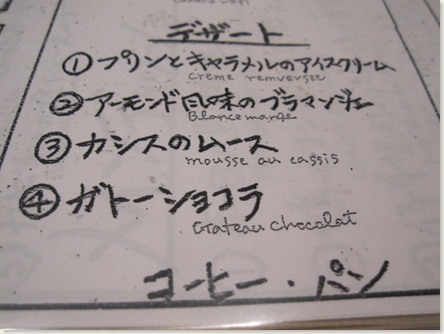 デザート
①プリンとキャラメルのアイスクリーム
creme remversee
②アーモンド風味のブラマンジェ
Blance mange
③カシスのムース
mousse au cassis
④ガトーショコラ
Grateau chocolat
コーヒー・パン